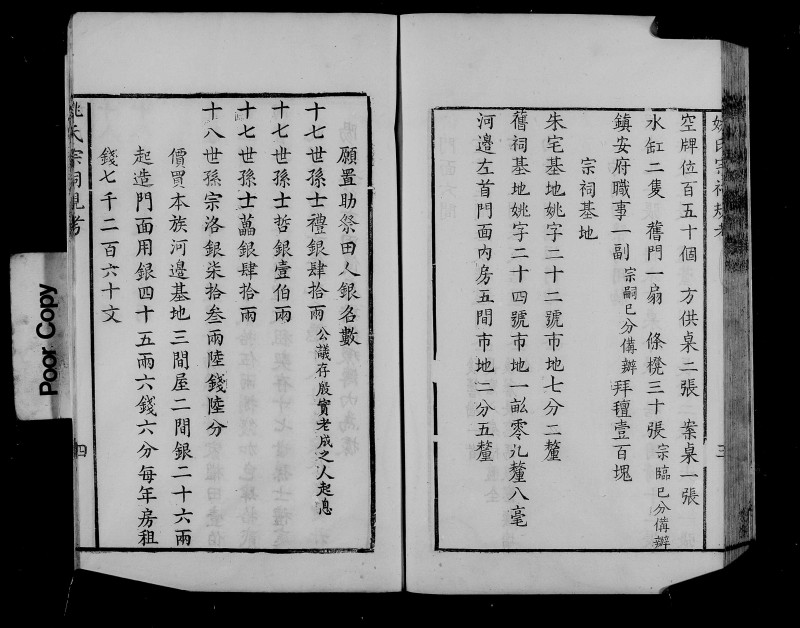 姚氏宗祠規考
三
空牌位百五十個　方供桌二張　案桌一張
水缸二隻　舊門一扇　條櫈三十張宗臨巳分備辦
鎮安府職事一副宗嗣巳分備辦拜氊壹百塊
宗祠基地
朱宅基地姚字二十二號市地七分二釐
舊祠基地姚字二十四號市地一畝零九釐八毫
河邊左首門面內房五間市地二分五釐
願置助祭田人銀名數
十七世孫士禮銀肆拾兩公議存殷實老成之人起息
十七世孫士哲銀壹伯兩
十七世孫士藟銀肆拾兩
十八世孫宗洛銀柒拾叁兩陸錢陸分
價買本族河邊基地三間屋二間銀二十六兩
起造門面用銀四十五兩六錢六分每年房租
錢七千二百六十文
姚氏宗祠規考
四
Poor Copy